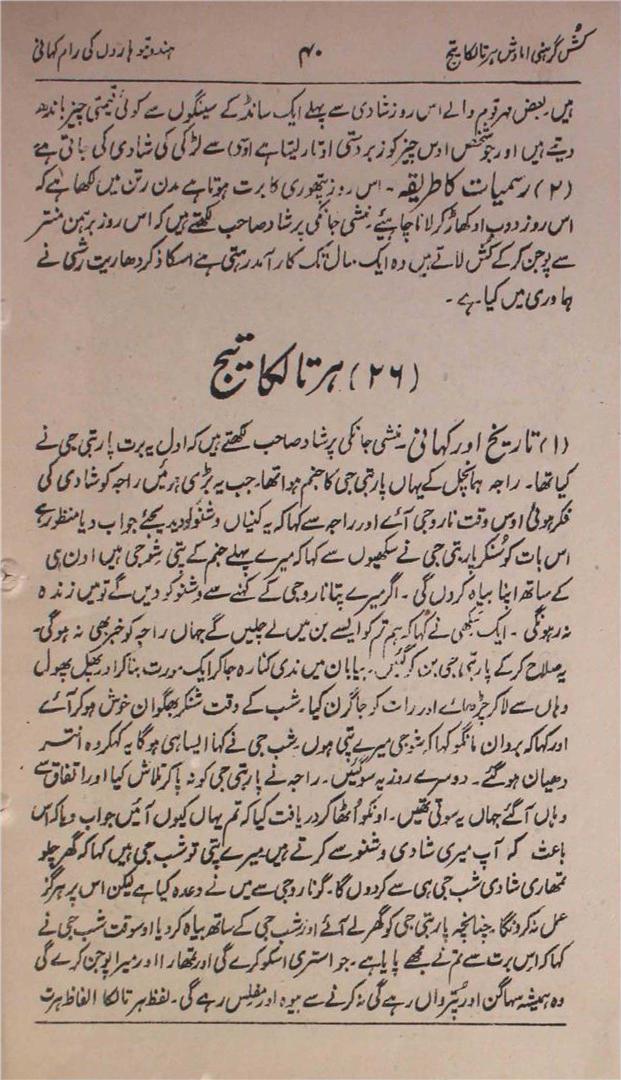 کُش گرہنی اماوش ہرتالکا تیج ۴۰ ہندو تیوہاروں کی رام کہانی
ہیں۔ بعض ہر قوم والے اس روز شادی سے پہلے ایک سانڈ کے سینگوں سے کوئی قیمتی چیز باندھ
دیتے ہیں اور جو شخص اوس چیز کو زبردستی اوتار لیتا ہے اوسی سے لڑکی کی شادی کی جاتی ہے
(۲) رسمیات کا طریقہ۔ اس روز پتھوری کا برت ہوتا ہے مدن رتن میں لکھا ہے کہ
اس روز دوب اوکھاڑ کر لانا چاہیئے۔ منشی جانکی پرشاد صاحب لکھتے ہیں کہ اس روز برہمن منتر
سے پوجن کر کے کش لاتے ہیں وہ ایک سال تک کارآمد رہتی ہے اسکا ذکر دھاریت رشی نے
ہاوری میں کیا ہے۔
(۲۶) ہرتالکا تیج
(۱) تاریخ اور کہانی۔ منشی جانکی پرشاد صاحب لکھتے ہیں کہ اول یہ برت پاربتی جی نے
کیا تھا۔ راجہ ہمانچل کے یہاں پاربتی جی کا جنم ہوا تھا۔ جب یہ بڑی ہوئیں راجہ کو شادی کی
فکر ہوئی اوس وقت نارو جی آئے اور راجہ سے کہا کہ یہ کنیاں وشنو کو دیدیجئے جواب دیا منظور ہے
اس بات کو سُنکر پاربتی جی نے سکھیوں سے کہا کہ میرے پہلے جنم کے پتی شوجی ہیں اون ہی
کے ساتھ اپنا بیاہ کروں گی۔ اگر میرے پتا نارو جی کے کہنے سے وشنو کو دیں گے تو میں زندہ
نہ رہونگی۔ ایک سکھی نے کہا کہ ہم تم کو ایسے بن میں لے چلیں گے جہاں راجہ کو خبر بھی نہ ہوگی۔
یہ صلاح کر کے پاربتی جی بن کو گئیں۔ بیابان میں ندی کنارہ جا کر ایک مورت بنا کر اور پھل پھول
وہاں سے لا کر چڑھائے اور رات کو جاگرن کیا۔ شب کے وقت شنکر بھگوان خوش ہو کر آئے
اور کہا کہ بروان مانگو کہا کہ شوجی میرے پتی ہوں۔ شب جی نے کہا ایسا ہی ہوگا یہ کہکر وہ انتر
دھیان ہو گئے۔ دوسرے روز یہ سو گئیں۔ راجہ نے پاربتی جی کو نہ پا کر تلاش کیا اور اتفاق سے
وہاں آ گئے جہاں یہ سوتی تھیں۔ اونکو اُٹھا کر دریافت کیا کہ تم یہاں کیوں آئیں جواب دیا کہ اس
باعث کہ آپ میری شادی وشنو سے کرتے ہیں میرے پتی تو شب جی ہیں کہا کہ گھر چلو
تمھاری شادی شب جی ہی سے کر دوں گا۔ گو نارو جی سے میں نے وعدہ کیا ہے لیکن اس پر ہرگز
عمل نہ کرونگا چنانچہ پاربتی جی کو گھر لے آئے اور شب جی کے ساتھ بیاہ کر دیا اوسوقت شب جی نے
کہا کہ اس برت سے تم نے مجھے پایا ہے۔ جو استری اسکو کرے گی اور تمھارا اور میرا پوجن کرے گی
وہ ہمیشہ سہاگن اور پترواں رہے گی نہ کرنے سے بیوہ اور مفلس رہے گی۔ لفظ ہرتالکا الفاظ ہرت